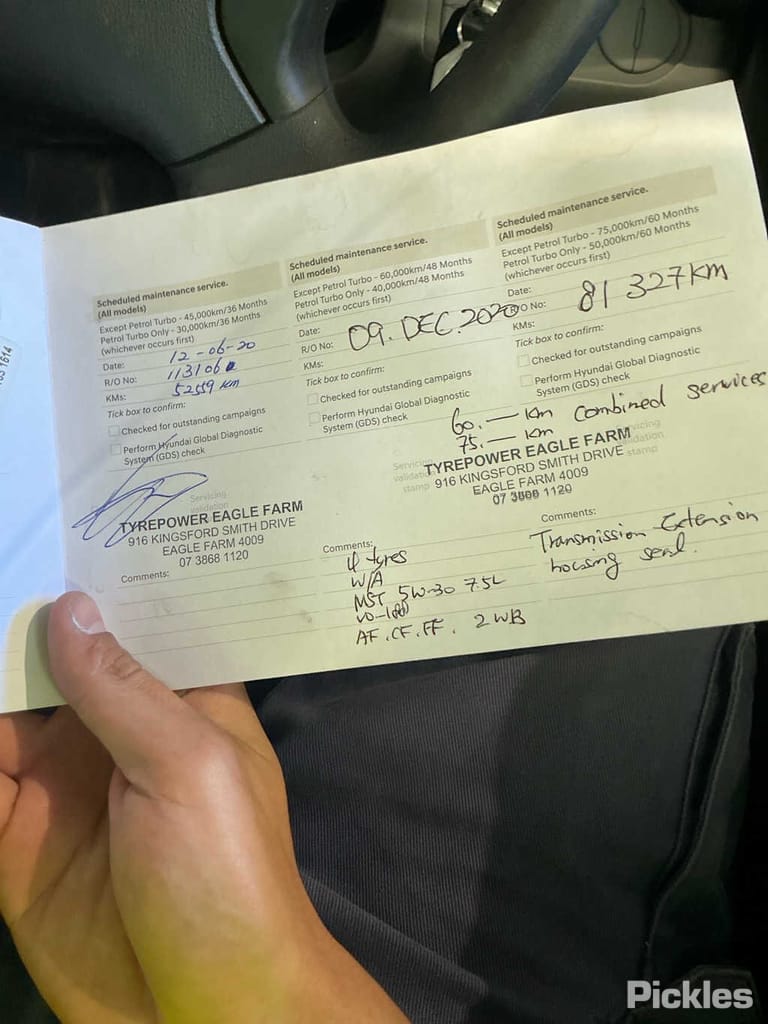 Scheduled maintenance service.
(All models)
Except Petrol Turbo - 45,000km/36 Months
Petrol Turbo Only - 30,000km/36 Months
(whichever occurs first)
Date: 12-06-20
R/O No: 113106
KMs: 52559 km
Tick box to confirm:
Checked for outstanding campaigns
Perform Hyundai Global Diagnostic
System (GDS) check
Servicing
validation
TYREPOWER EAGLE FARM
916 KINGSFORD SMITH DRIVE
EAGLE FARM 4009
07 3868 1120
Comments:
Scheduled maintenance service.
(All models)
Except Petrol Turbo - 60,000km/48 Months
Petrol Turbo Only - 40,000km/48 Months
(whichever occurs first)
Date:
09. DEC. 2020
R/O No:
KMs:
Tick box to confirm:
Checked for outstanding campaigns
Perform Hyundai Global Diagnostic
System (GDS) check
Scheduled maintenance service.
(All models)
Except Petrol Turbo - 75,000km/60 Months
Petrol Turbo Only - 50,000km/60 Months
(whichever occurs first)
Date:
R/O No: 81 327KM
KMs:
Tick box to confirm:
Checked for outstanding campaigns
Perform Hyundai Global Diagnostic
System (GDS) check
60.— KM combined services
75.— KM
Servicing
validation
stamp
TYREPOWER EAGLE FARM
916 KINGSFORD SMITH DRIVE
EAGLE FARM 4009
07 3868 1120
Servicing
validation
stamp
Comments:
4 tyres
W/A
MST 5W-30 7.5L
AF. CF. FF. 2WB
Comments:
Transmission Extension
housing seal.
Pickles